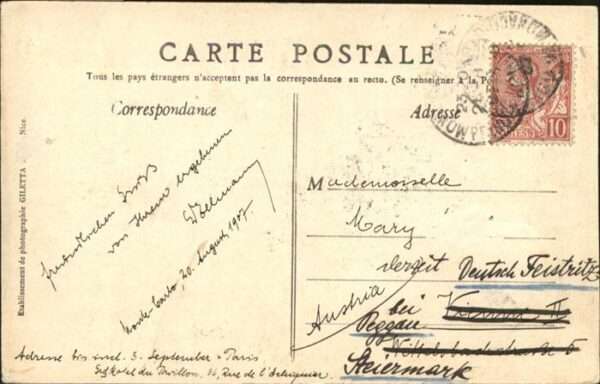 CARTE POSTALE
Tous les pays étrangers n'acceptent pas la correspondance au recto. (Se renseigner à la Po
Correspondance
Adresse
10
Etablissement de photographie GILETTA - Nice
freundlichen Gruß
von Ihrem ergebenen
Monte-Carlo, 20. August 1907.
Adresse bis incl. 3. September = Paris
Hôtel du Pavillon, 36, Rue de l'Echiquier.
Mademoiselle
Mary
derzeit Deutsch Feistritz
bei
Peggau
Austria
Steiermark